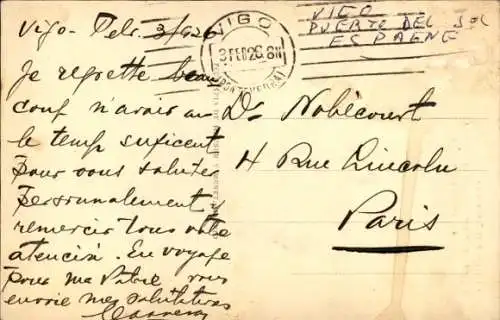 Vigo. Febr. 3/926
Je regrette beau
coup n'avais au
le temp suficent
pour vous saluter
personnalement y
remercir tous votre
atención. En voyage
pour ma Patrie vous
envoie mes salutations
VIGO
3 FEB 26 8N
(PONTEVEDRA)
VIGO
PUERTO DEL SOL
ESPAÈNE
Dr. Nobécourt
4 Rue Lincoln
Paris